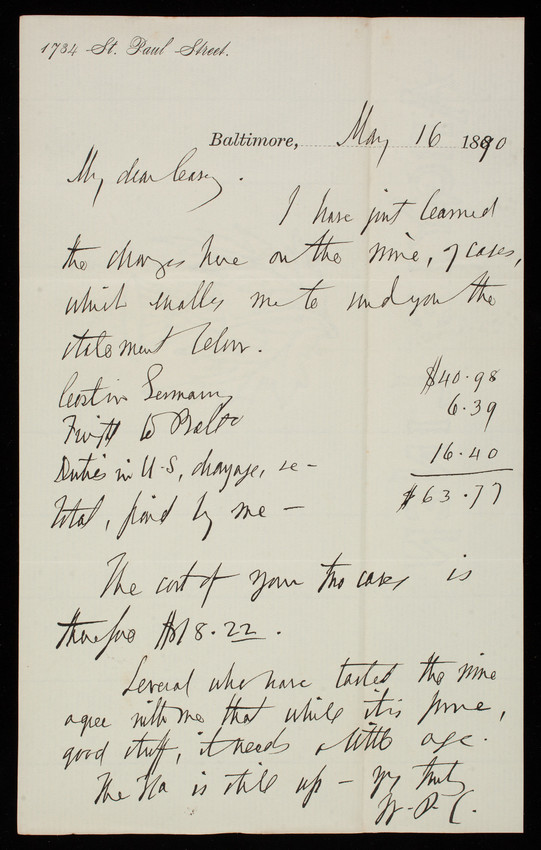 1734 St. Paul Street.
Baltimore, May 16 1890
My dear Casey.
I have just learned
the charges here on the wine, 7 cases,
which enables me to send you the
statement below.
Cost in Germany $40.98
Frt to Balto 6.39
Duties in U.S, drayage, &c - 16.40
Total, paid by me - $63.77
The cost of your two cases is
therefore $18.22.
Several who have tasted the wine
agree with me that while it is pure,
good stuff, it needs a little age.
The is still up - yrs truly
W. P. C.